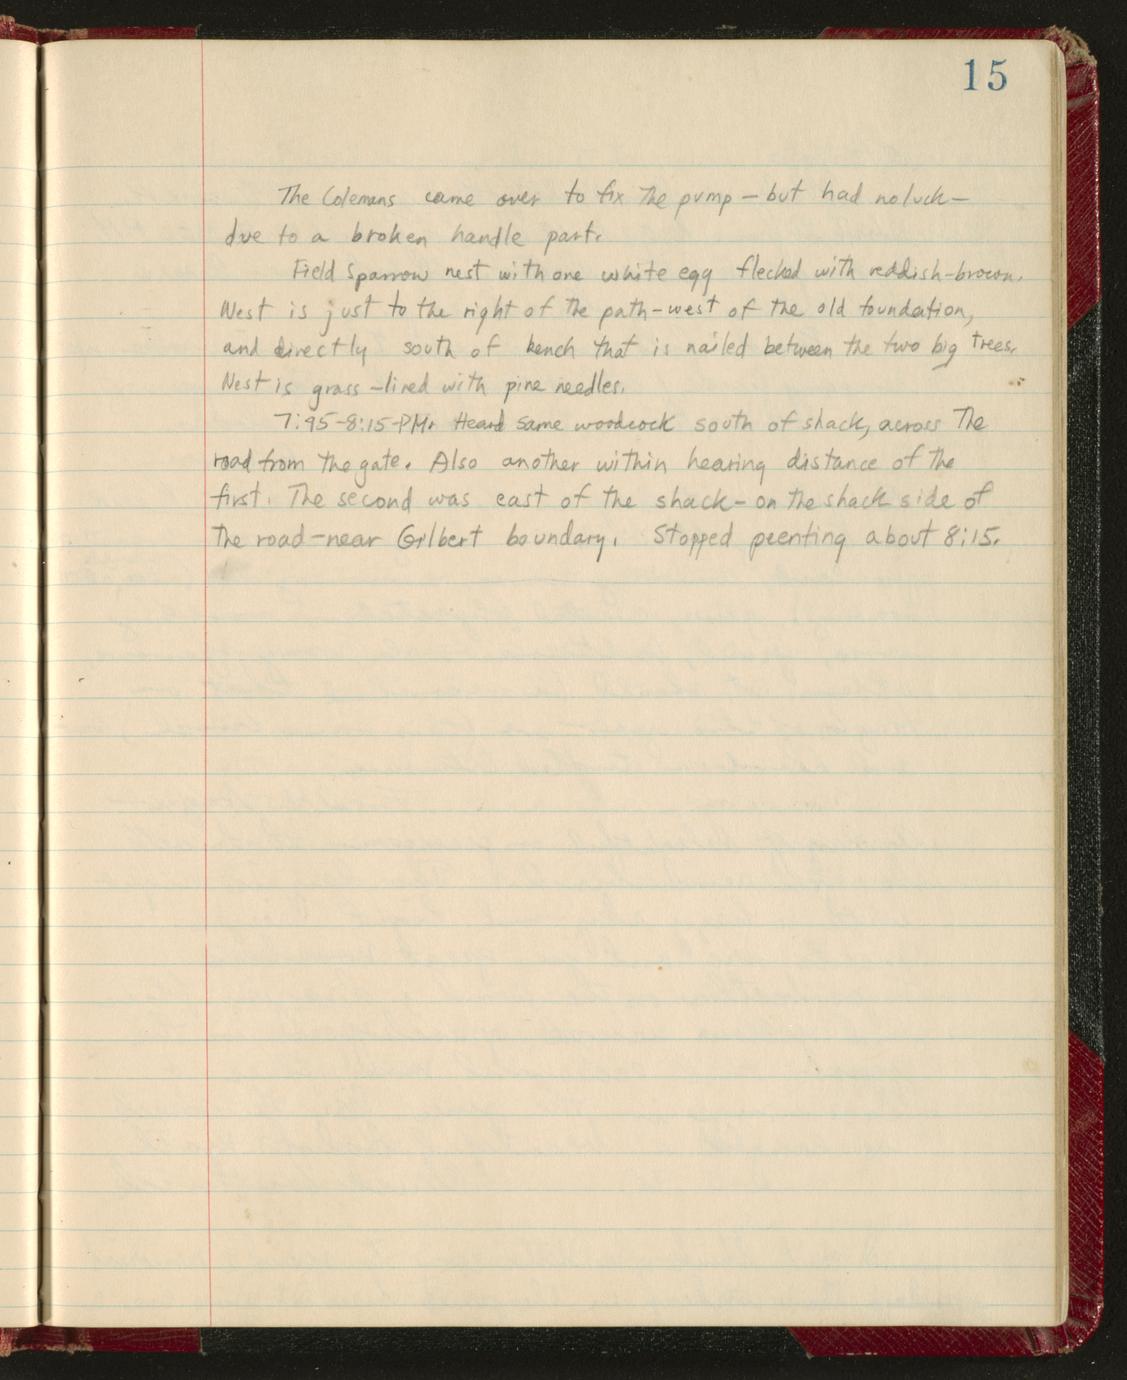 15
The Colemans came over to fix The pump — but had no luck —
due to a broken handle part.
Field Sparrow nest with one white egg flecked with reddish-brown.
Nest is just to the right of The path - west of the old foundation,
and directly south of bench that is nailed between the two big trees.
Nest is grass - lined with pine needles.
7:45-8:15-PM. Heard same woodcock south of shack, across The
road from The gate. Also another within hearing distance of the
first. The second was east of the shack - on the shack side of
The road - near Gilbert boundary. Stopped peenting about 8:15.